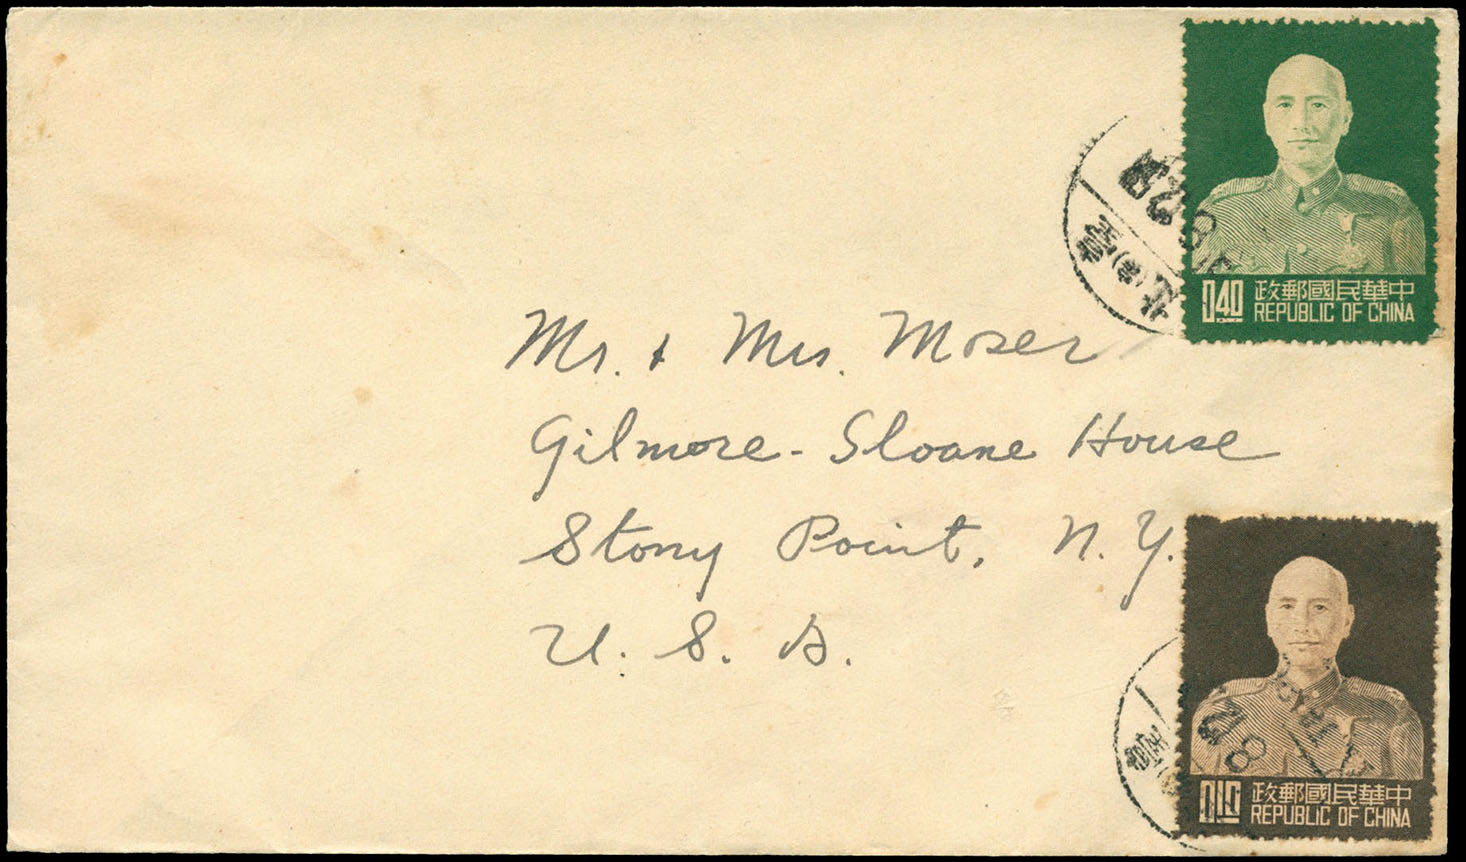 Mr. & Mrs. Moser
Gilmore-Sloane House
Stony Point, N.Y.
U.S.A.
0.40
政郵國民華中
REPUBLIC OF CHINA
0.10
政郵國民華中
REPUBLIC OF CHINA